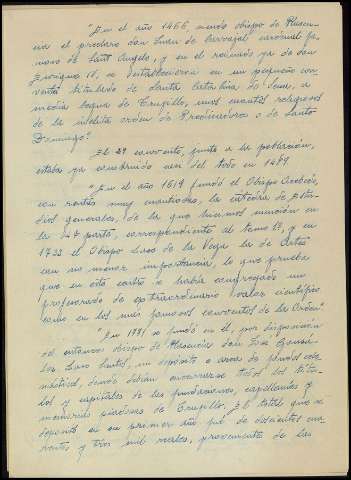 "En el año 1466, siendo obispo de Plasen-
cia el preclaro don Juan de Carvajal cardenal fa-
moso de Sant Angelo, y en el reinado ya de don
Enrique IV, se establecieron en un pequeño con-
vento titulado de Santa Catalina de Sena, a
media legua de Trujillo, unos cuantos religiosos
de la ínclita orden de Predicadores o de Santo
Domingo".
El 2º convento, junto a la población,
estaba ya construido casi del todo en 1489
"En el año 1619 fundó el Obispo
con rentas muy cuantiosas, la cátedra de Estu-
dios generales, de la que hicimos mención en
la 4ª parte, correspondiente al tomo 1º, y en
1733 el Obispo Laso de la Vega la de Artes
con no menor importancia, lo que prueba
que en esta casa se había congregado un
profesorado de extraordinario valor científico
como en los más famosos conventos de la Orden"
"En 1781 se fundó en él, por disposición
del entonces obispo de Plasencia don José Gonzá-
lez Laso Santos, un depósito o arcas de piedad ecle-
siástica, donde debían encerrarse todos los títu-
los y capitales de las fundaciones, capellanías y
memorias piadosas de Trujillo. El total que se
depositó en su primer año fué de doscientos cua-
renta y tres mil reales, procedentes de las